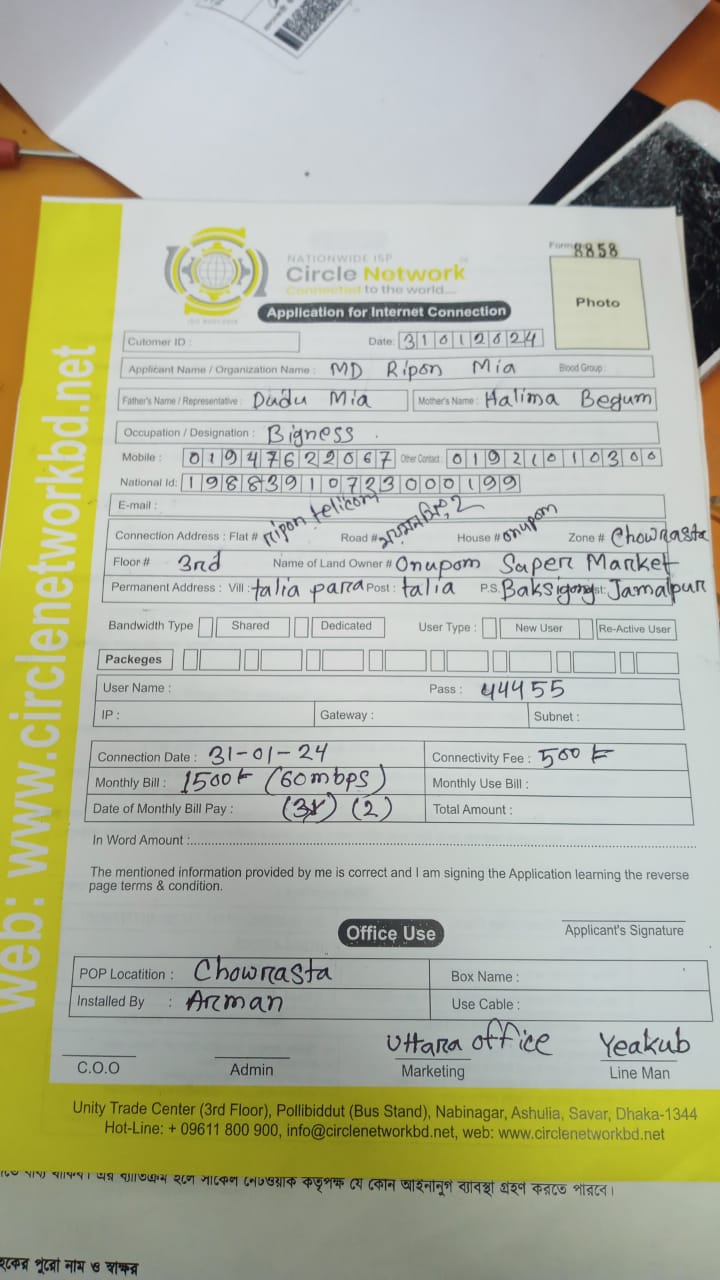 Form 8858
NATIONWIDE ISP
Circle Network
Connected to the world....
Application for Internet Connection
Photo
Cutomer ID : Date: 31012024
Applicant Name / Organization Name : MD Ripon Mia Blood Group :
Father's Name / Representative : Dudu Mia Mother's Name : Halima Begum
Occupation / Designation : Bigness .
Mobile : 01947622067 Other Contact : 01921010300
National Id: 19883910723000199
E-mail :
Connection Address : Flat # ripon telicom Road # House # onupom Zone # Chowrasta
Floor # 3rd Name of Land Owner # Onupom Super Market
Permanent Address : Vill : talia para Post : talia P.S. Baksigong Jamalpur
Bandwidth Type Shared Dedicated User Type : New User Re-Active User
Packeges
User Name : Pass : 44455
IP : Gateway : Subnet :
Connection Date : 31-01-24 Connectivity Fee : 500 ৳
Monthly Bill : 1500 ৳ (60mbps) Monthly Use Bill :
Date of Monthly Bill Pay : (2) Total Amount :
In Word Amount :
The mentioned information provided by me is correct and I am signing the Application learning the reverse
page terms & condition.
Applicant's Signature
Office Use
POP Locatition : Chowrasta Box Name :
Installed By : Arman Use Cable :
Uttara office Yeakub
C.O.O Admin Marketing Line Man
Unity Trade Center (3rd Floor), Pollibiddut (Bus Stand), Nabinagar, Ashulia, Savar, Dhaka-1344
Hot-Line: + 09611 800 900, info@circlenetworkbd.net, web: www.circlenetworkbd.net
web: www.circlenetworkbd.net
কর্তৃপক্ষ যে কোন আইনানুগ ব্যবস্থা গ্রহণ করতে পারবে।
পুরো নাম ও স্বাক্ষর